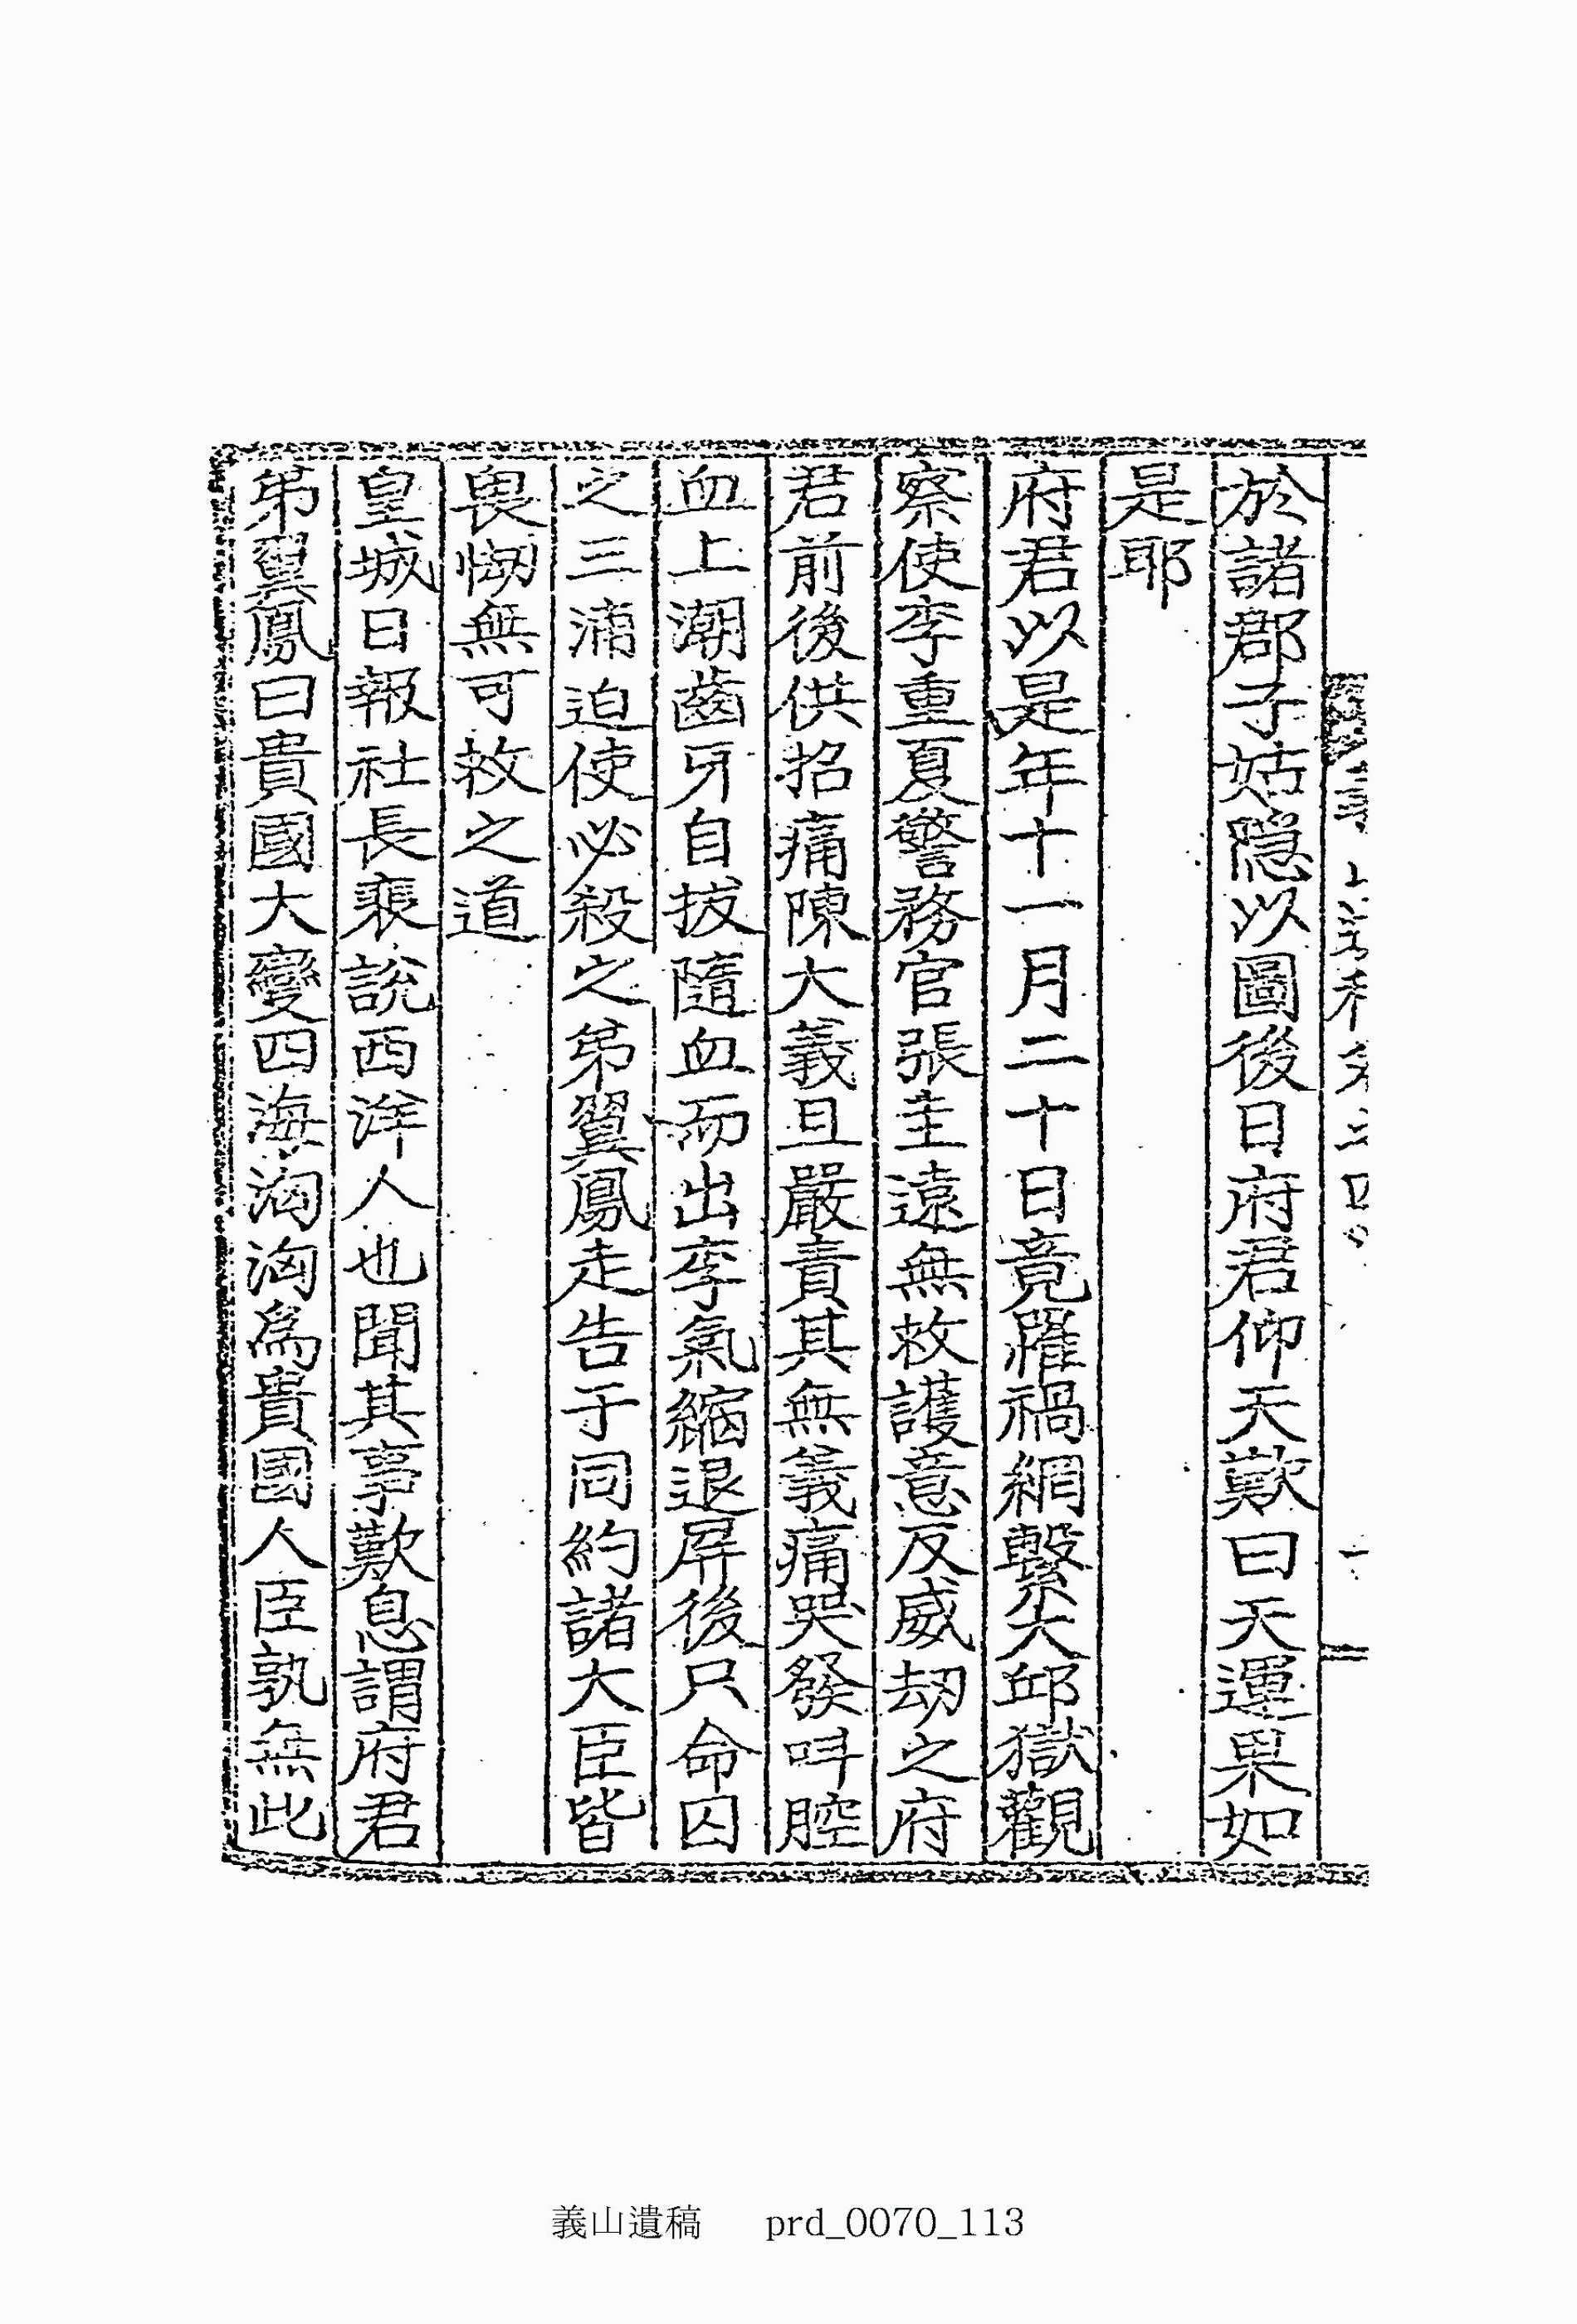 於諸郡子姑隱以圖後日府君仰天歎曰天運果如
是耶
府君以是年十一月二十日竟罹禍網繫大邱獄觀
察使李重夏警務官張圭遠無救護意反威刼之府
君前後供招痛陳大義且嚴責其無義痛哭發呌腔
血上潮齒牙自拔隨血而出李氣縮退屛後只命囚
之三浦迫使必殺之弟翼鳳走告于同約諸大臣皆
畏㤼無可救之道
皇城日報社長裵說西洋人也聞其事歎息謂府君
弟翼鳳曰貴國大變四海洶洶爲貴國人臣孰無此
義山遺稿 prd_0070_113